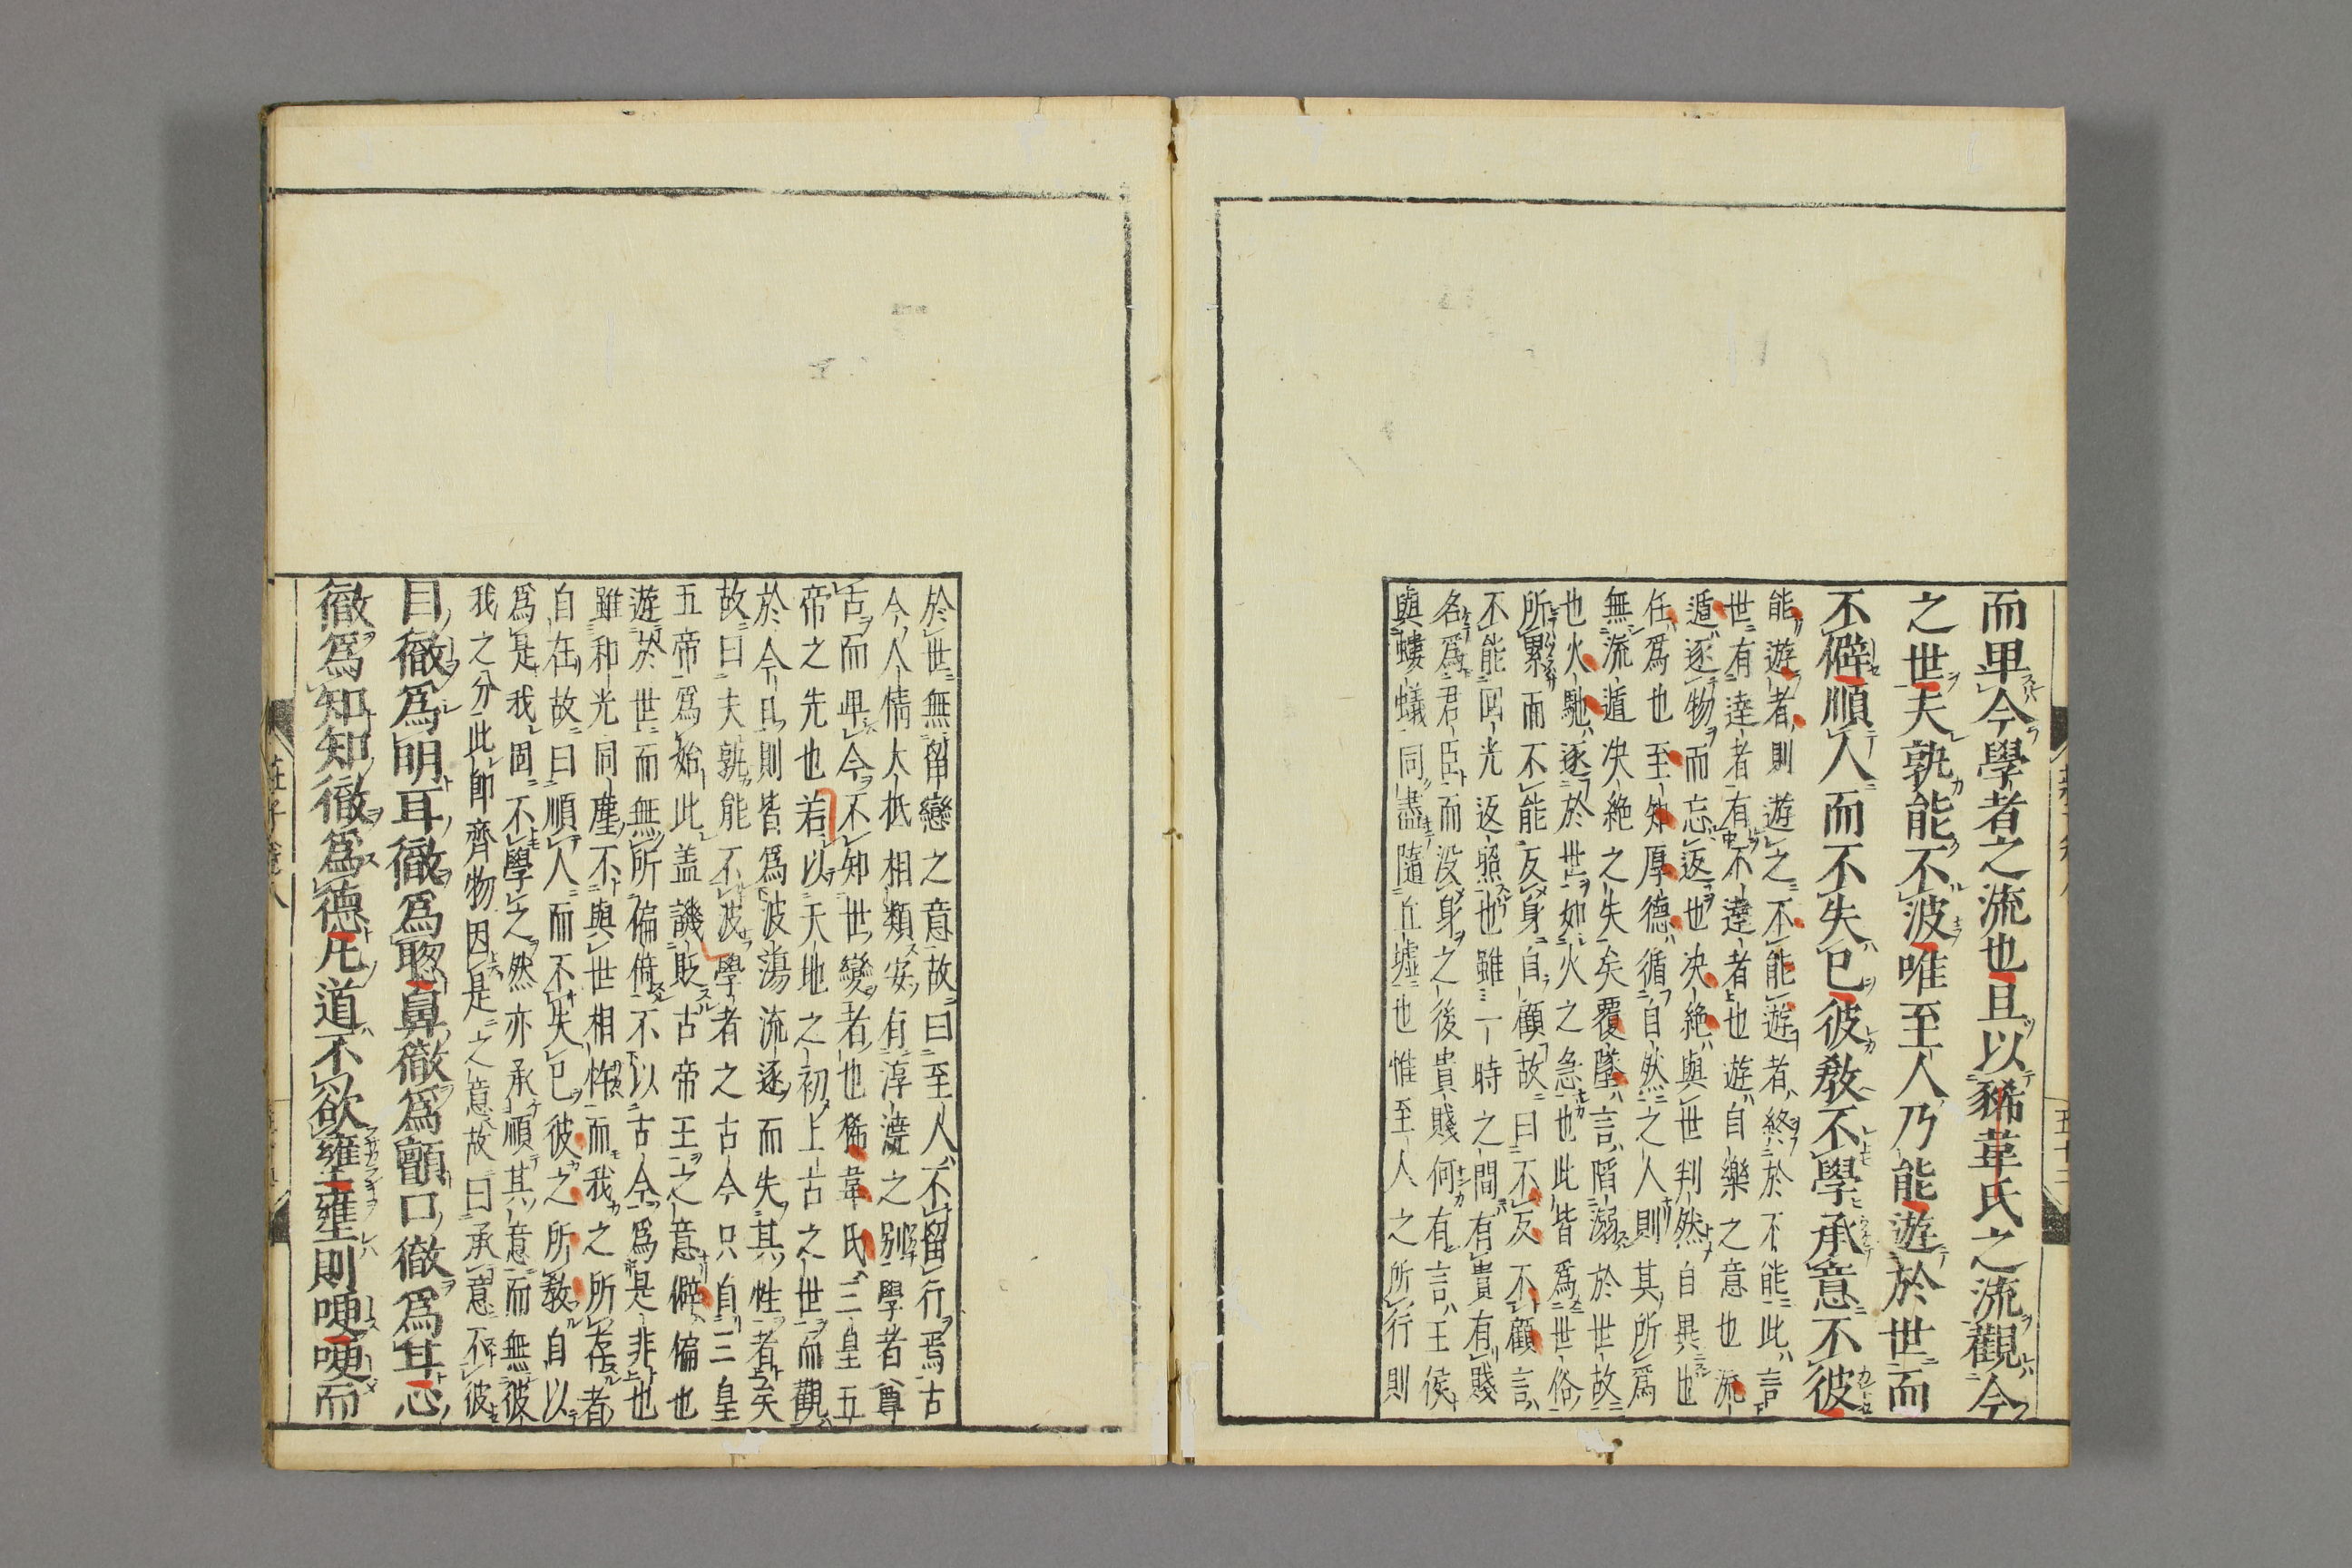 而卑今學者之流也且以狶韋氏之流觀今
之世夫孰能不波唯至人乃能遊於世而
不僻順人而不失已彼敎不學承意不彼
能遊者則遊之不能遊者終於不能此言
世有達者有不達者也遊自樂之意也流
遁逐物而忘返也决絶與世判然自異也
任爲也至知厚德循自然之人則其所爲
無流遁决絶之失矣覆墜言陷溺於世故
也火馳逐於世如火之急也此皆爲世俗
所累而不能反身自顧故曰不反不顧言
不能囘光返照也雖一時之間有貴有賤
名爲君臣而没身之後貴賤何有言王侯
與螻蟻同盡隨丘墟也惟至人之所行則
於世無留戀之意故曰至人不留行焉古
今人情大抵相類安有淳澆之別學者尊
古而卑今不知世變者也狶韋氏三皇五
帝之先也若以天地之初上古之世而觀
於今日則皆爲波蕩流逐而失其性者矣
故曰夫孰能不波學者之古今只自三皇
五帝爲始此盖譏貶古帝王之意僻偏也
遊於世而無所偏倚不以古今爲是非也
雖和光同塵不與世相忤而我之所存者
自在故曰順人而不失已彼之所敎自以
爲是我固不學之然亦承順其意而無彼
我之分此卽齊物因是之意故曰承意不彼
目徹爲明耳徹爲聰鼻徹爲顫口徹爲甘心
徹爲知知徹爲德凡道不欲壅壅則哽哽而